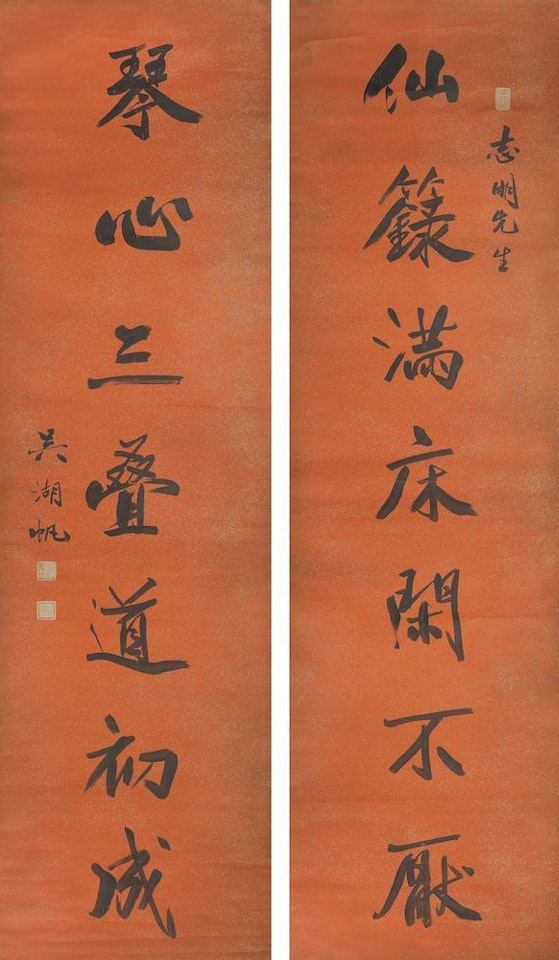 志明先生
仙籙滿床閑不厭
琴心三疊道初成
吳湖帆